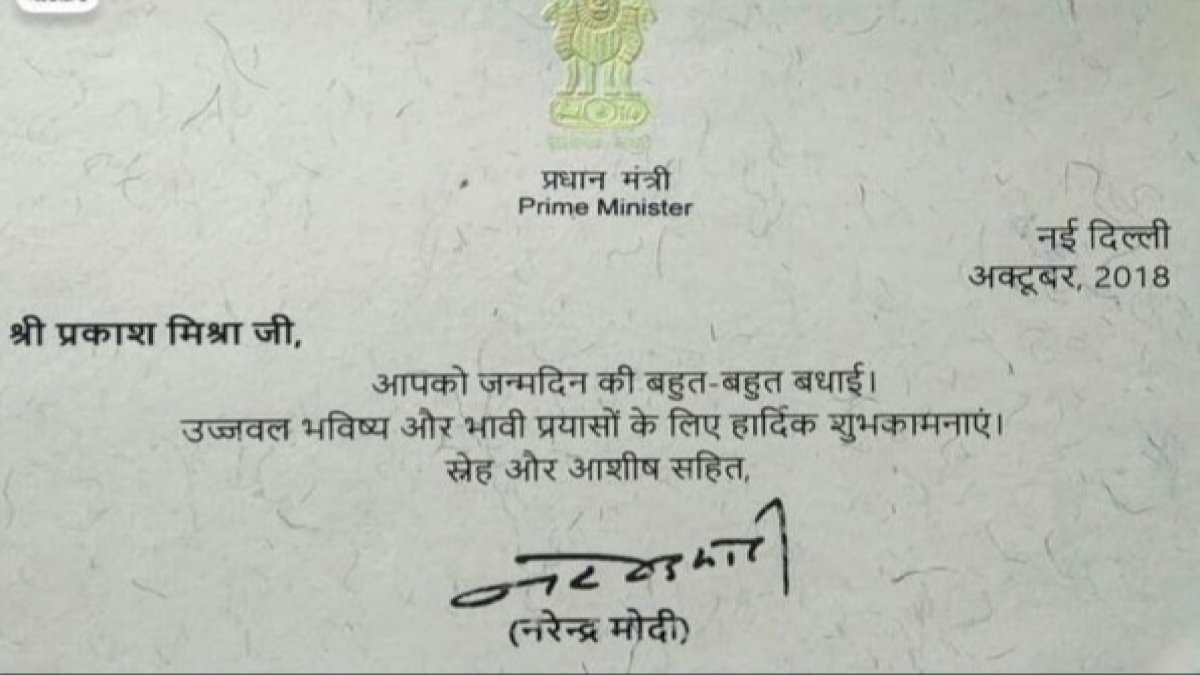 प्रधान मंत्री
Prime Minister
नई दिल्ली
अक्टूबर, 2018
श्री प्रकाश मिश्रा जी,
आपको जन्मदिन की बहुत-बहुत बधाई।
उज्जवल भविष्य और भावी प्रयासों के लिए हार्दिक शुभकामनाएं।
स्नेह और आशीष सहित,
(नरेन्द्र मोदी)